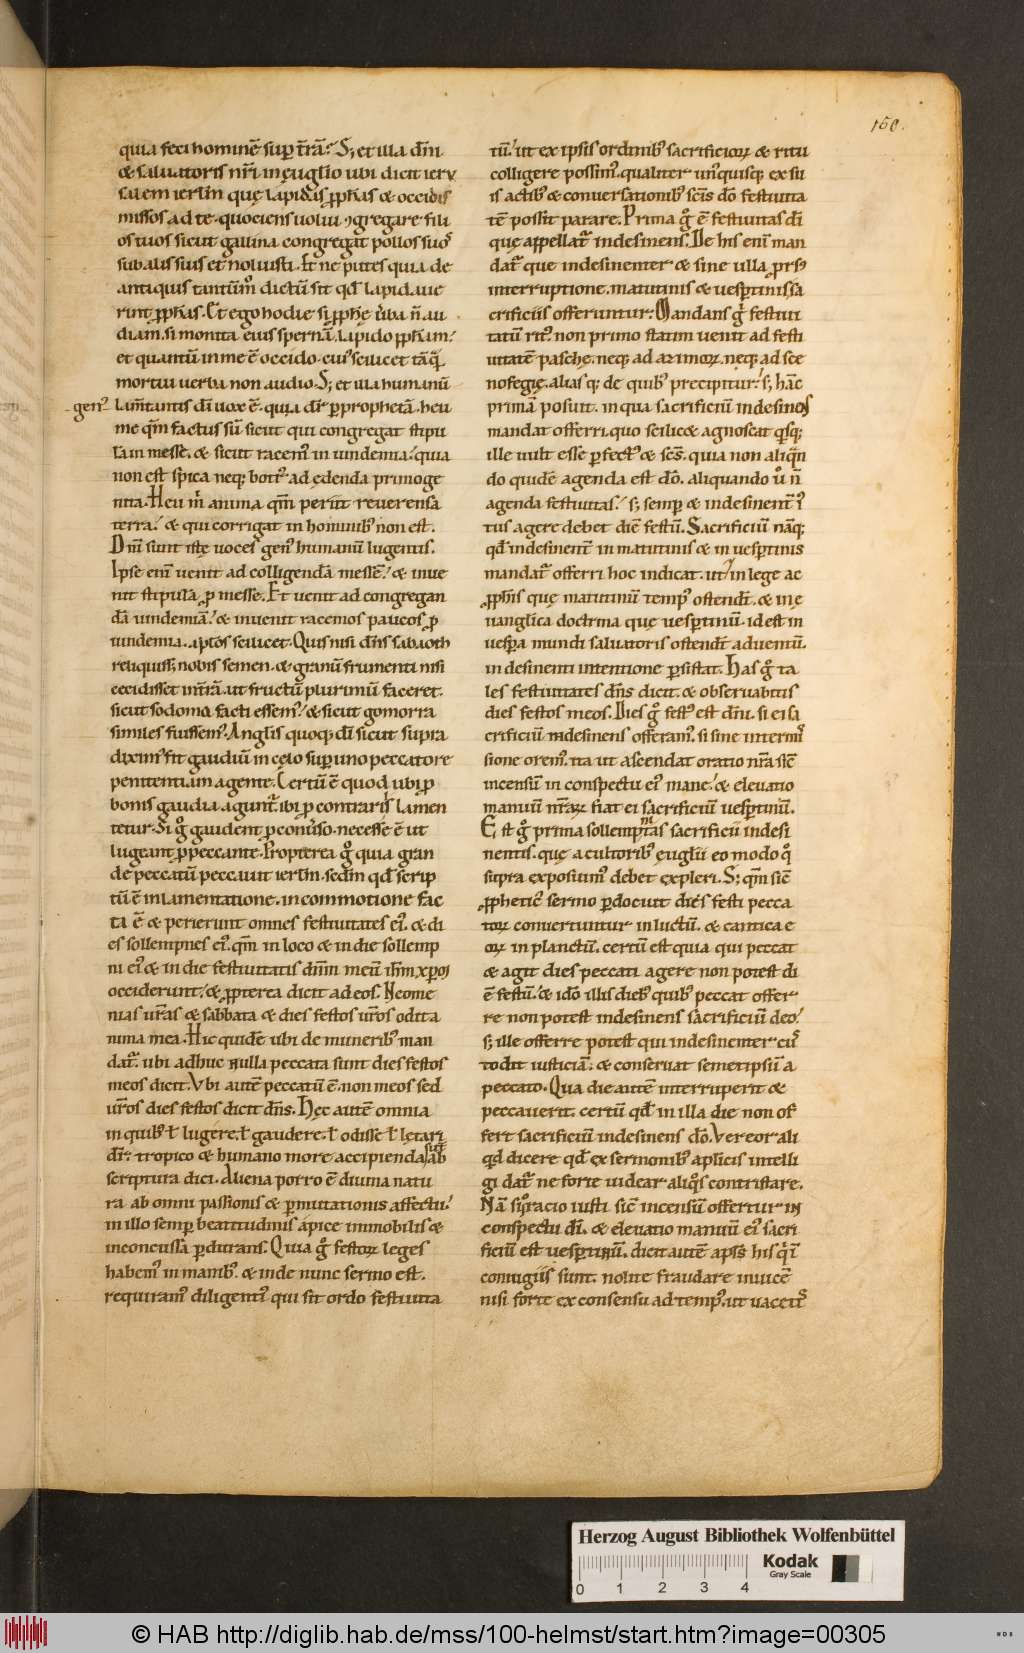 150.
quia feci hominē sup t̄rā? S; et illa dn̄i
& saluatoris nr̄i in ęuglio ubi dicit ieru
salem ierłm quę lapidas pphas & occidis
missos ad te. quociens uolui ɔgregare fili
os tuos sicut gallina congregat pullos suos
sub alis suis et noluisti. Et ne putes quia de
antiquis tantūm dictū sit qd lapidaue
rint pphas. Et ego hodie si pphę uba n̄ au
diam. si monita eius spernā. lapido pphām?
et quantū in me ē occido. cui' scilicet tāq̄
mortui uerba non audio. S; et illa humanū
gen' lam̄tantis dn̄i uox ē. quia dr̄ p prophetā. heu
me qm̄ factus sū sicut qui congregat stipu
lā in messe. & sicut racem' in uindemia? quia
non est spica neq; botr' ad ędenda primoge
nita. Heu m̄ anima qm̄ periit reuerensa
terra? & qui corrigat in hominib' non est.
Dn̄i sunt istę uoces gen' humanū lugentis.
Ipse eni uenit ad colligendā messē? & inue
nit stipulā p messe. Et uenit ad congregan
dā uindemiā? & inuenit racemos paucos p
uindemia. aptos scilicet. Quis nisi dn̄s sabaoth
reliquiss; nobis semen. & granū frumenti nisi
cecidisset in t̄rā. ut fructū plurimū faceret.
sicut sodoma facti essem'? & sicut gomorra
similes fuissem'. Anglis quoq; dī sicut supra
dixim' fit gaudiū in cęlo sup uno peccatore
penitentiam agente. Certū ē quod ubi p
bonis gaudia aguntr̄. ibi p contrariis lamen
tetur. Si g° gaudent p conuso. necesse ē ut
lugeant p peccante. Propterea g° quia gran
de peccatū peccauit ierłm. sedm̄ qd scrip
tū ē in lamentatione. in commotione fac
ta ē & perierunt omnes festiuitates ei'. & di
es sollempnes ei'. qm̄ in loco & in die sollemp
ni ei' & in die festiuitatis dn̄m meū ihm xpm
occiderunt? & ppterea dicit ad eos. Neome
nias ur̄as & sabbata & dies festos ur̄os odit a
nima mea. Hic quidē ubi de munerib' man
datr̄. ubi adhuc nulla peccata sunt dies festos
meos dicit. Vbi autē peccatū ē. non meos sed
ur̄os dies festos dicit dn̄s. Hęc autē omnia
in quib' ł lugere. ł gaudere. ł odisse ł lętari
dr̄. tropico & humano more accipienda sunt ab
scriptura dici. Aliena porro ē diuina natu
ra ab omni passionis & pmutationis affectu?
in illo semp beatitudinis apice immobilis &
inconcussa pdurans. Quia g° festoꝝ leges
habem' in manib'. & inde nunc sermo est.
requiram' diligent' qui sit ordo festiuita
tū? ut ex ipsis ordinib' sacrificioꝝ & ritu
colligere possim'. qualiter un'quisq; ex su
is actib' & conuersationib' scīs dō festiuita
tē possit parare. Prima g° ē festiuitas dī
quę appellatr̄ indesinens. De his eni man
datr̄ que indesinenter & sine ulla prs'
interruptione. matutinis & uesptinis sa
crificiis offeruntur. Mandans g° festiui
tatū rit'. non primo statim uenit ad festi
uitatē paschę. neq; ad azimoꝝ. neq; ad sce
nofegię. alias q; de quib' precipitur? s; hāc
primā posuit. in qua sacrificiū indesinens
mandat offerri. quo scilic& agnoscat qsq;
ille uult esse pfect' & scs. quia non aliqn̄
do quidē agenda est dō. aliquando ū n̄
agenda festiuitas? s; semp & indesinent̄ i'
tus agere debet diē festū. Sacrificiū naq;
qd indesinent̄ in matutinis & in uesptinis
mandatr̄ offerri hoc indicat. ut in lege ac
pphis quę matutinū temp' ostendt. & in ę
uanglica doctrina que uesptinū. id est in
uespa mundi saluatoris ostendt aduentū.
indesinenti intentione psistat. Has g° ta
les festiuitates dn̄s dicit. & obseruabitis
dies festos meos. Dies g° fest' est dn̄i. si ei sa
crificiū indesinens offeram'. si sine intermis
sione orem'. ita ut ascendat oratio nr̄a sicē
incensū in conspectu ei' mane? & eleuatio
manuū nr̄aꝝ fiat ei sacrificiū uesptinū.
Est g° prima sollempnitas sacrificii indesi
nentis. quę a cultorib' ęuglii eo modo q°
supra exposuim' debet expleri. S; qm̄ sicē
pphetic' sermo pdocuit dies festi pecca
toꝝ conuertuntur in luctū. & cantica e
oꝝ in planctū. certū est quia qui peccat
& agit dies peccati agere non potest di
ē festū? & idō illis dieb' quib' peccat offer
re non potest indesinens sacrificiū deo?
s; ille offerre potest qui indesinenter cus
todit iusticiā. & conseruat semetipsū a
peccato. Qua die autē interruperit &
peccauerit. certū qd in illa die non of
fert sacrificiū indesinens dō. Vereor ali
qd dicere qd ex sermonib' aplicis intelli
gi datr̄. ne forte uidear aliqs contristare.
Nā si oracio iusti sicē incensū offertur in
conspectu dī. & eleuatio manuū ei' sacri
ficiū est uesptinū. dicit autē aps his q̄ in
coniugiis sunt. nolite fraudare inuicē
nisi forte ex consensu ad temp'. ut uacetis
Herzog August Bibliothek Wolfenbüttel
Kodak
Gray Scale
0 1 2 3 4
© HAB http://diglib.hab.de/mss/100-helmst/start.htm?image=00305